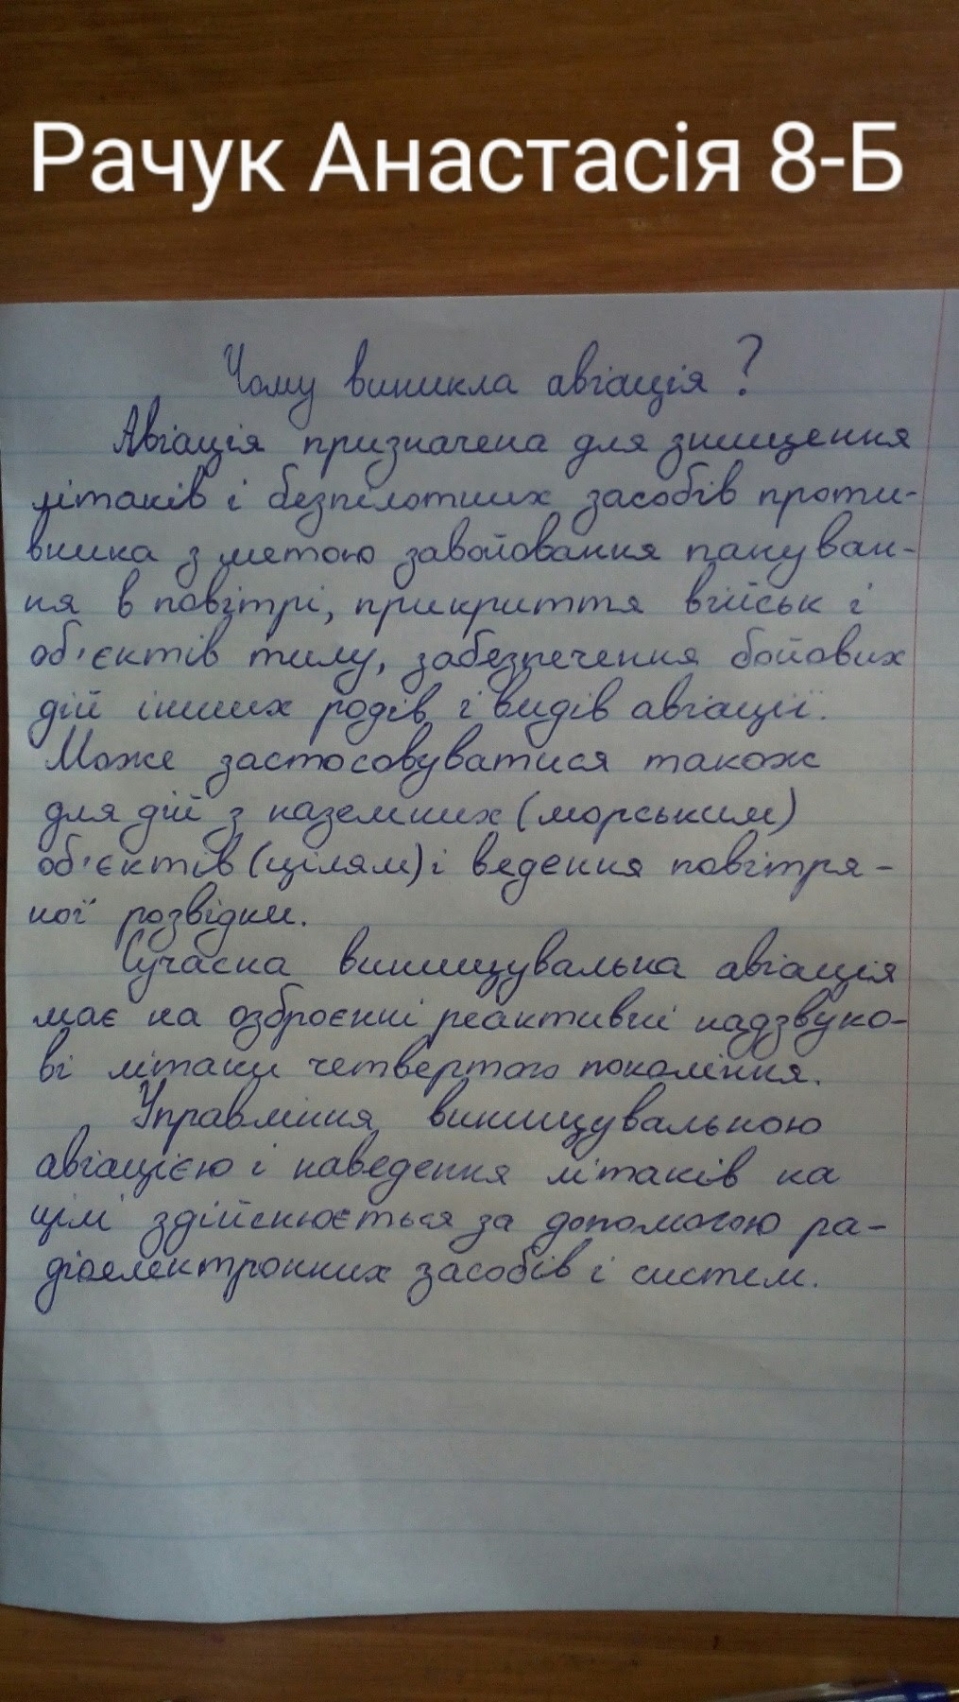 Рачук Анастасія 8-Б
Чому виникла авіація?
Авіація призначена для знищення
літаків і безпілотних засобів проти-
вника з метою завоювання пануван-
ня в повітрі, прикриття військ і
об'єктів тилу, забезпечення бойових
дій інших родів і видів авіації.
Може застосовуватися також
для дій з наземних (морським)
об'єктів (цілям) і ведення повітря-
ної розвідки.
Сучасна винищувальна авіація
має на озброєнні реактивні надзвуко-
ві літаки четвертого покоління.
Управління винищувальною
авіацією і наведення літаків на
цілі здійснюється за допомогою ра-
діоелектронних засобів і систем.